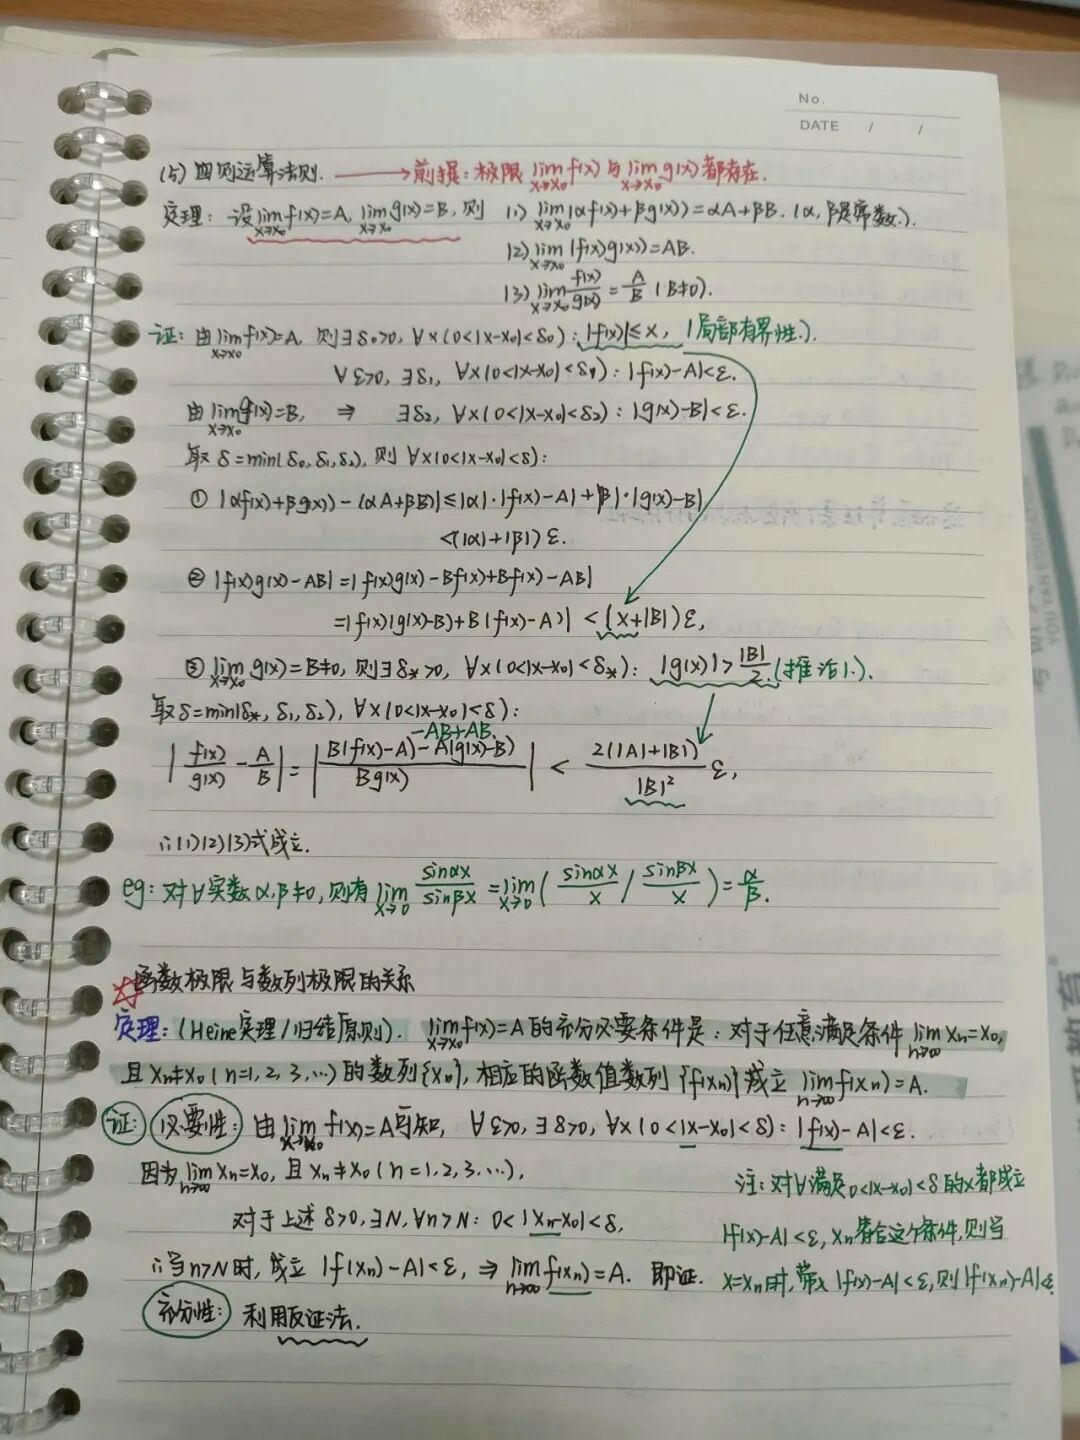 No.
DATE / /
(5) 四则运算法则. ——→前提: 极限 lim_{x→x₀} f(x) 与 lim_{x→x₀} g(x) 都存在.
定理: 设 lim_{x→x₀} f(x)=A, lim_{x→x₀} g(x)=B, 则 (1) lim_{x→x₀} (αf(x)+βg(x))=αA+βB. (α, β是常数.).
(2) lim_{x→x₀} (f(x)g(x))=AB.
(3) lim_{x→x₀} f(x)/g(x) = A/B (B≠0).
证: 由 lim_{x→x₀} f(x)=A, 则∃δ₀>0, ∀x(0<|x-x₀|<δ₀): |f(x)|≤X, (局部有界性.).
∀ε>0, ∃δ₁, ∀x(0<|x-x₀|<δ₁): |f(x)-A|<ε.
由 lim_{x→x₀} g(x)=B, ⇒ ∃δ₂, ∀x(0<|x-x₀|<δ₂): |g(x)-B|<ε.
取 δ=min(δ₀,δ₁,δ₂), 则 ∀x(0<|x-x₀|<δ):
① |αf(x)+βg(x))-(αA+βB)|≤|α|·|f(x)-A|+|β|·|g(x)-B|
<(|α|+|β|)ε.
② |f(x)g(x)-AB|=|f(x)g(x)-Bf(x)+Bf(x)-AB|
=|f(x)(g(x)-B)+B(f(x)-A)| <(X+|B|)ε,
③ lim_{x→x₀} g(x)=B≠0, 则∃δ*>0, ∀x(0<|x-x₀|<δ*): |g(x)|>|B|/2. (推论1.).
取δ=min(δ*, δ₁, δ₂), ∀x(0<|x-x₀|<δ):
-AB+AB.
|f(x)/g(x) - A/B| = |B(f(x)-A)-A(g(x)-B)/Bg(x)| < 2(|A|+|B|)/|B|² ε,
∴(1)(2)(3)式成立.
eg: 对∀实数α,β≠0, 则有 lim_{x→0} sinαx/sinβx = lim_{x→0} (sinαx/x / sinβx/x) = α/β.
☆函数极限与数列极限的关系
定理: (Heine定理/归结原则). lim_{x→x₀} f(x)=A的充分必要条件是: 对于任意满足条件 lim_{n→∞} xₙ=x₀,
且 xₙ≠x₀(n=1,2,3,…)的数列{xₙ}, 相应的函数值数列{f(xₙ)}成立 lim_{n→∞} f(xₙ)=A.
证: 必要性: 由 lim_{x→x₀} f(x)=A可知, ∀ε>0, ∃δ>0, ∀x(0<|x-x₀|<δ): |f(x)-A|<ε.
因为 lim_{n→∞} xₙ=x₀, 且 xₙ≠x₀(n=1,2,3,…),
注: 对∀满足0<|x-x₀|<δ的x都成立
对于上述 δ>0, ∃N, ∀n>N: 0<|xₙ-x₀|<δ,
|f(x)-A|<ε, xₙ符合这个条件, 则当
∴当n>N时, 成立 |f(xₙ)-A|<ε, ⇒ lim_{n→∞} f(xₙ)=A. 即证.
x=xₙ时, 带入 |f(x)-A|<ε, 则|f(xₙ)-A|<ε
充分性: 利用反证法.